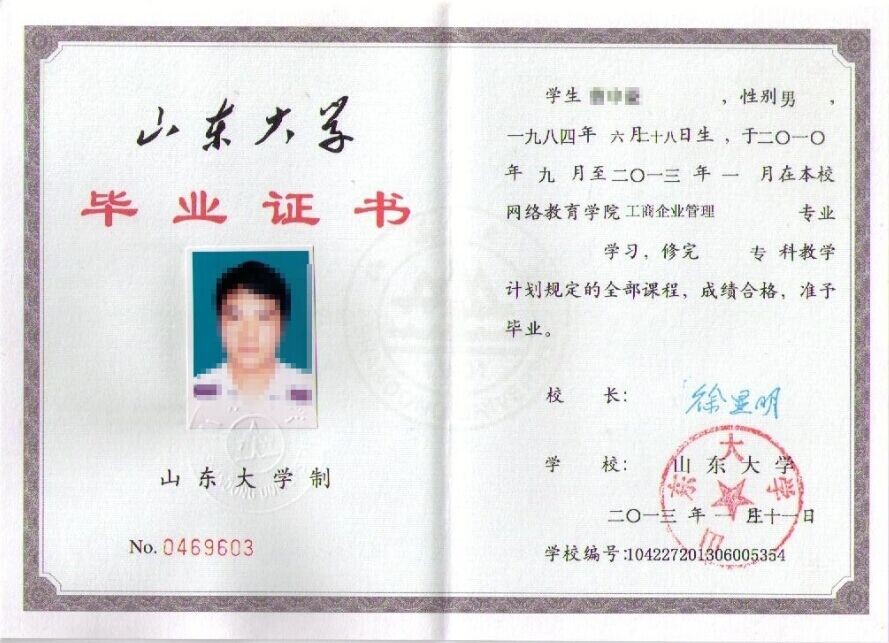 山东大学
毕业证书
山东大学制
No. 0469603
学生 ，性别男，
一九八四年 六月二十八日生，于二〇一〇
年 九 月至二〇一三 年 一 月在本校
网络教育学院 工商企业管理 专业
学习，修完 专 科教学
计划规定的全部课程，成绩合格，准予
毕业。
校 长： 徐显明
学 校： 山东大学
二〇一三 年 一 月 十一日
学校编号:104227201306005354
山东大学